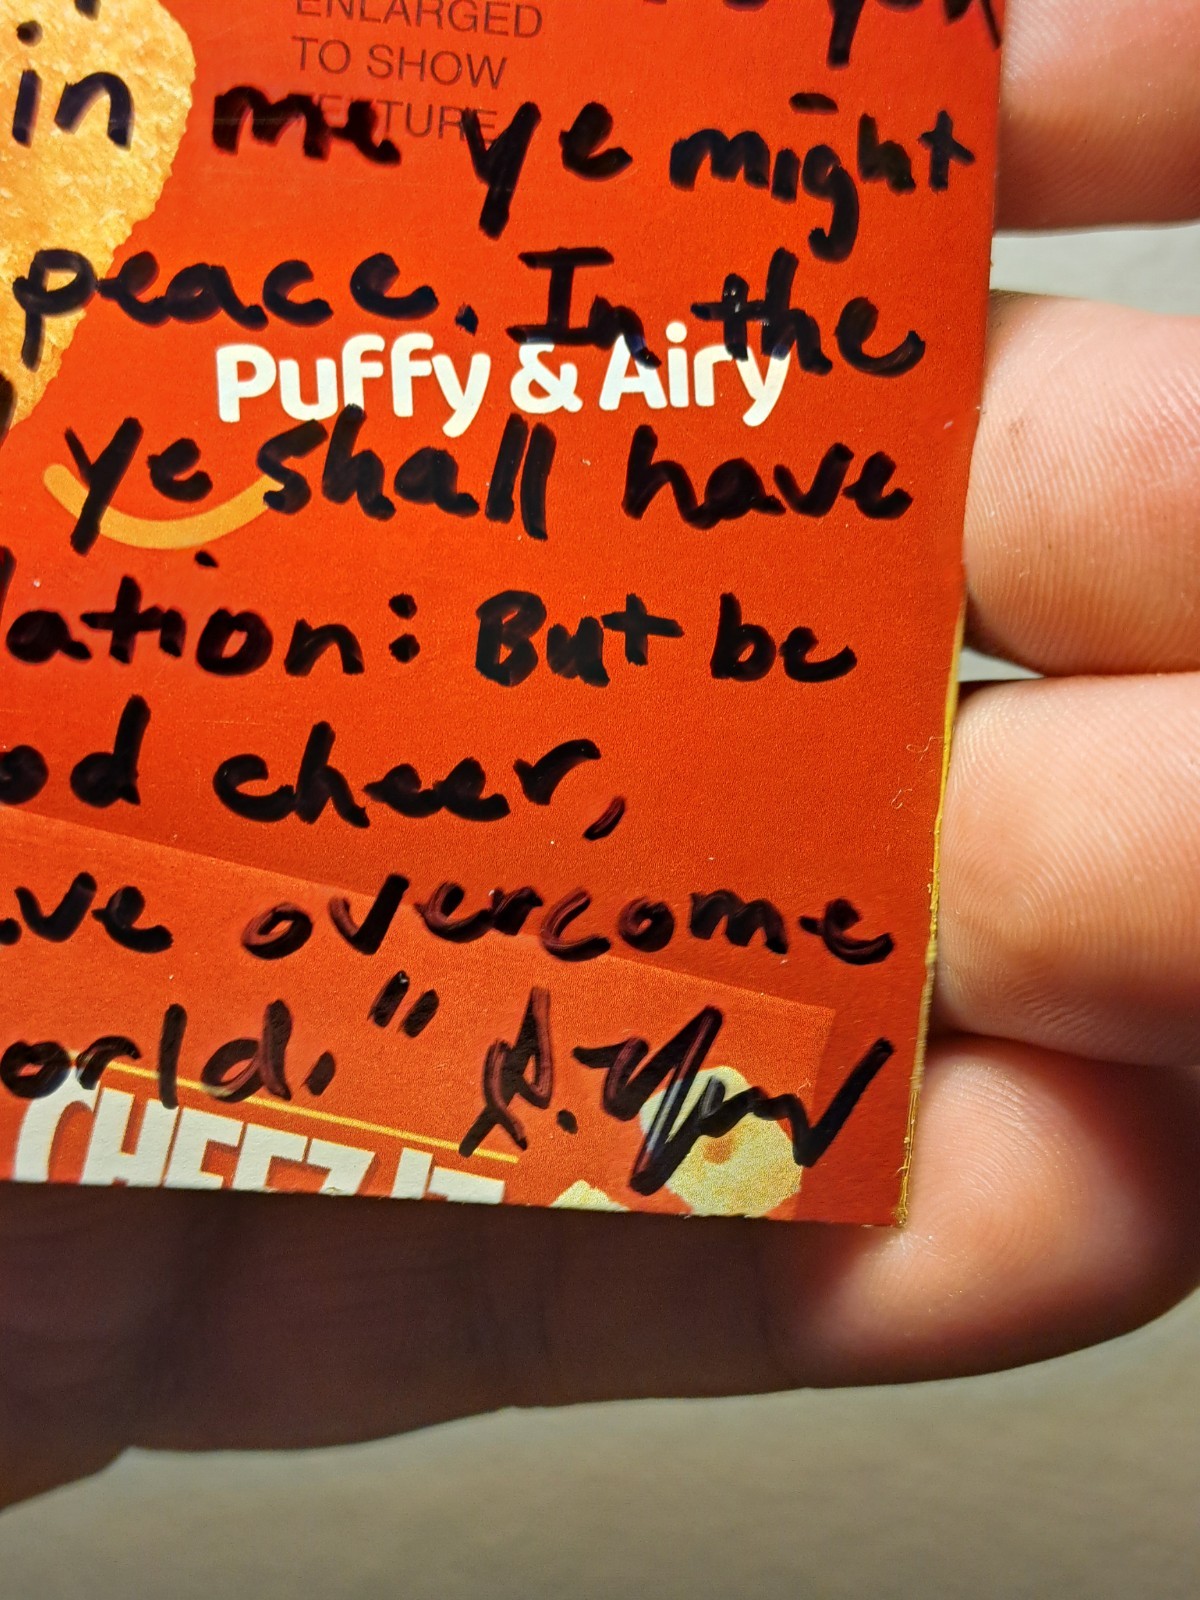 ENLARGED
TO SHOW
TEXTURE
you
in me ye might
peace. In the
Puffy & Airy
ye shall have
lation: But be
od cheer,
ve overcome
orld."
CHEEZ-IT